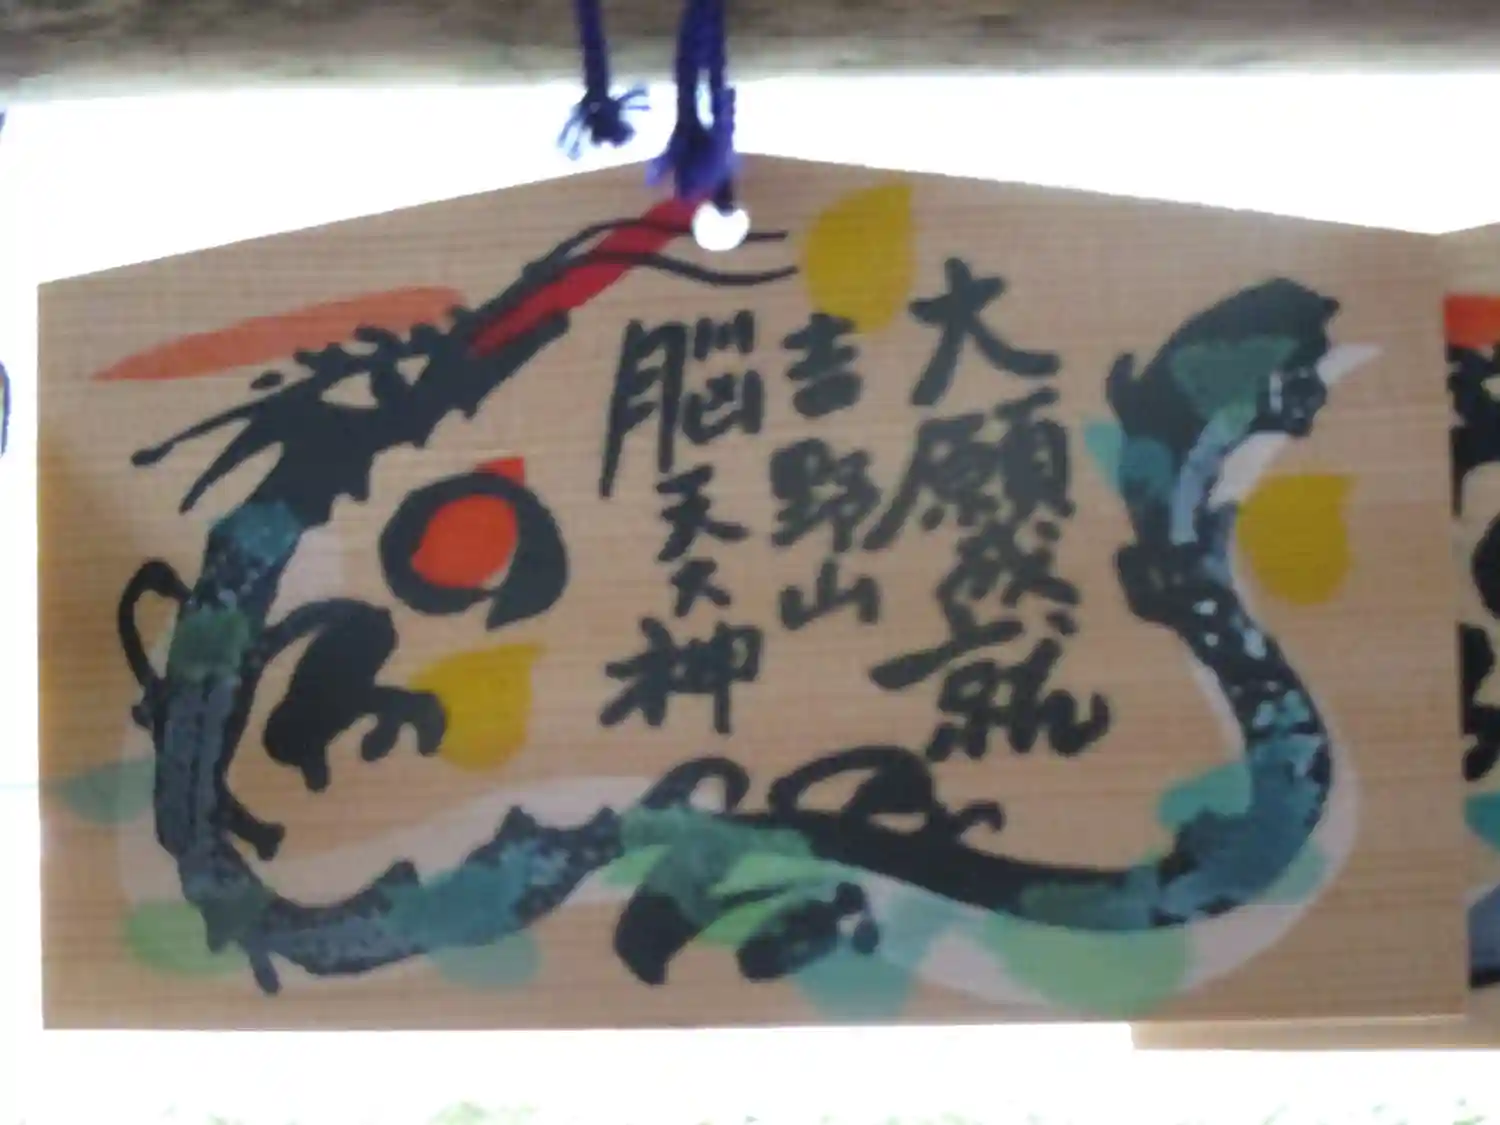 大願成就
吉野山
脳天大神